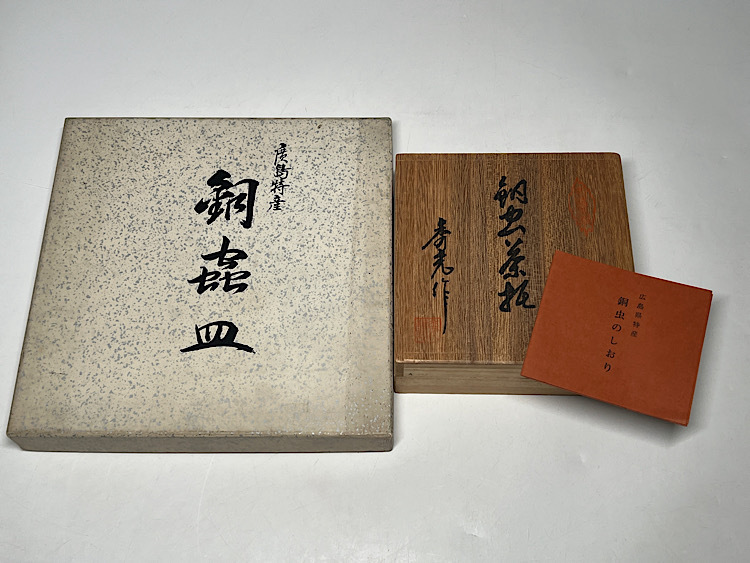 廣島特産
銅蟲皿
銅虫茶托
秀光作
広島県特産
銅虫のしおり